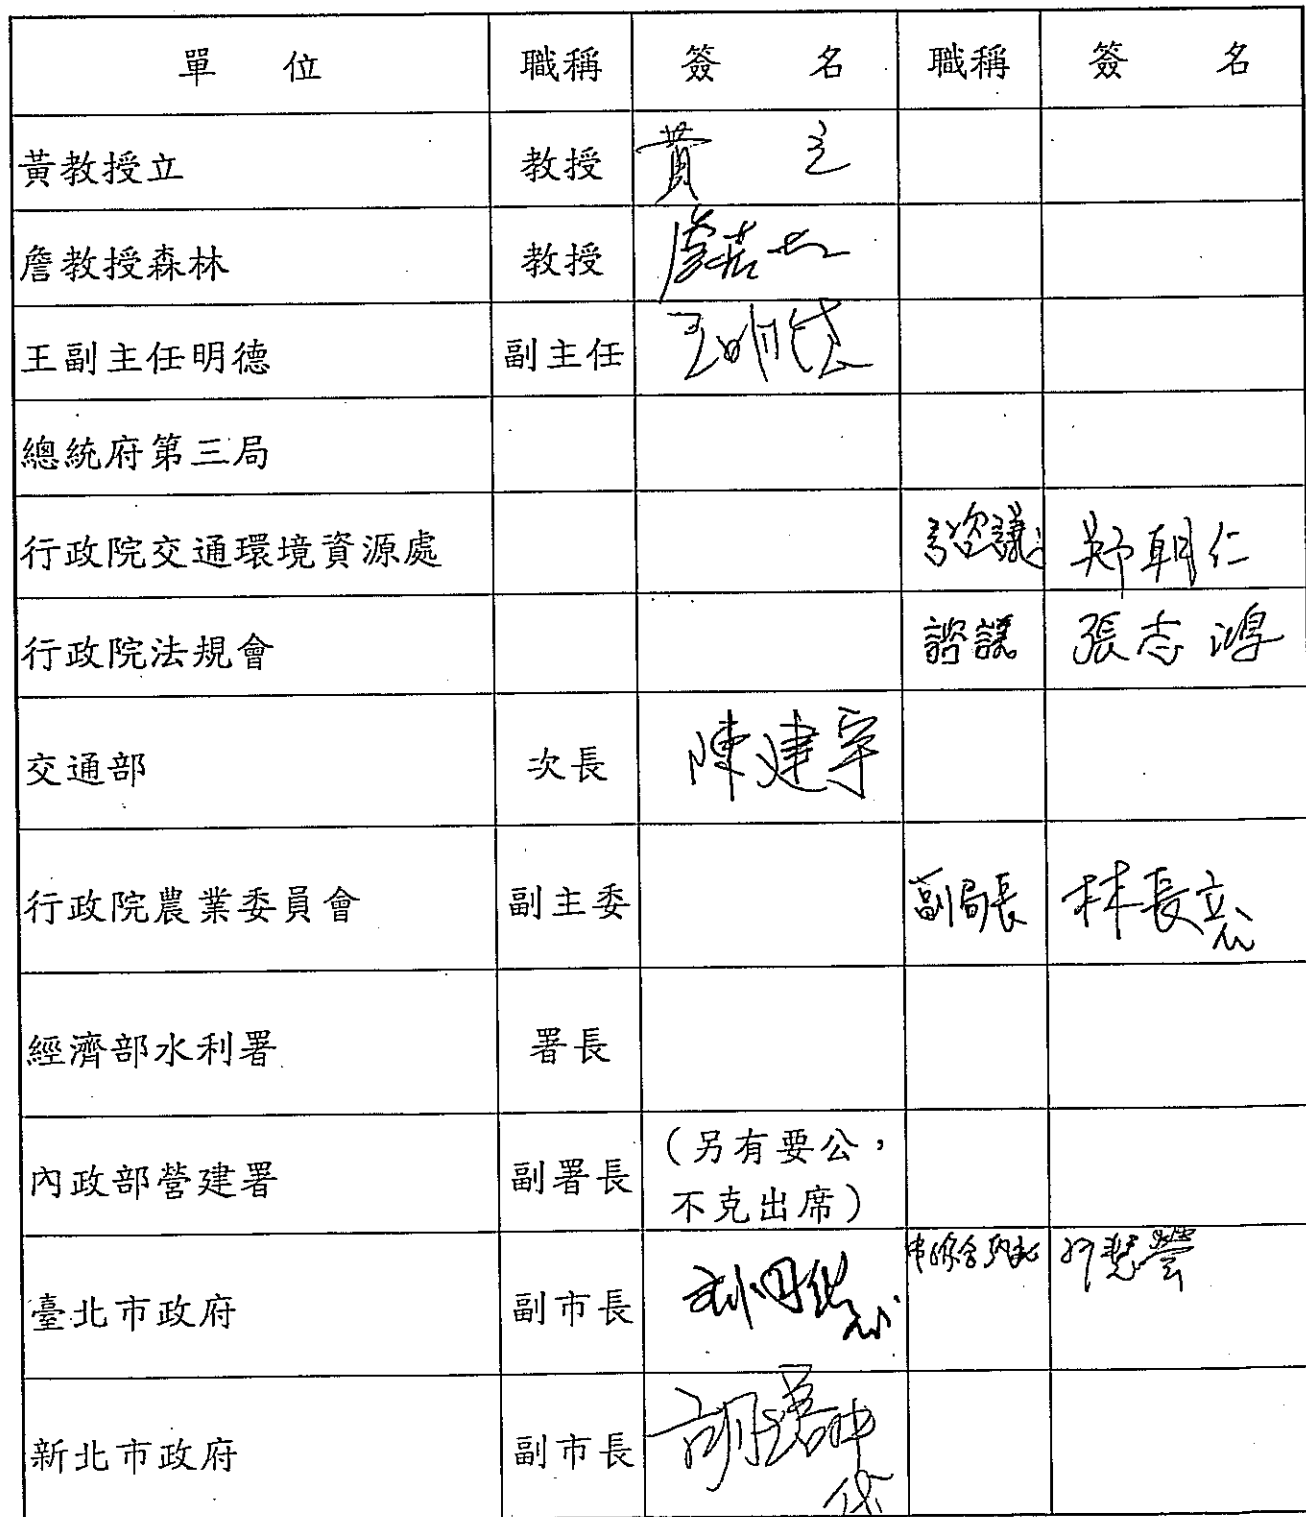 單 位 職稱 簽 名 職稱 簽 名
黃教授立 教授 黃 立
詹教授森林 教授
王副主任明德 副主任 王明德
總統府第三局
行政院交通環境資源處 諮議 鄭朝仁
行政院法規會 諮議 張志鴻
交通部 次長 陳建宇
行政院農業委員會 副主委 副局長 林長立
經濟部水利署 署長
內政部營建署 副署長 (另有要公,
不克出席)
臺北市政府 副市長
新北市政府 副市長